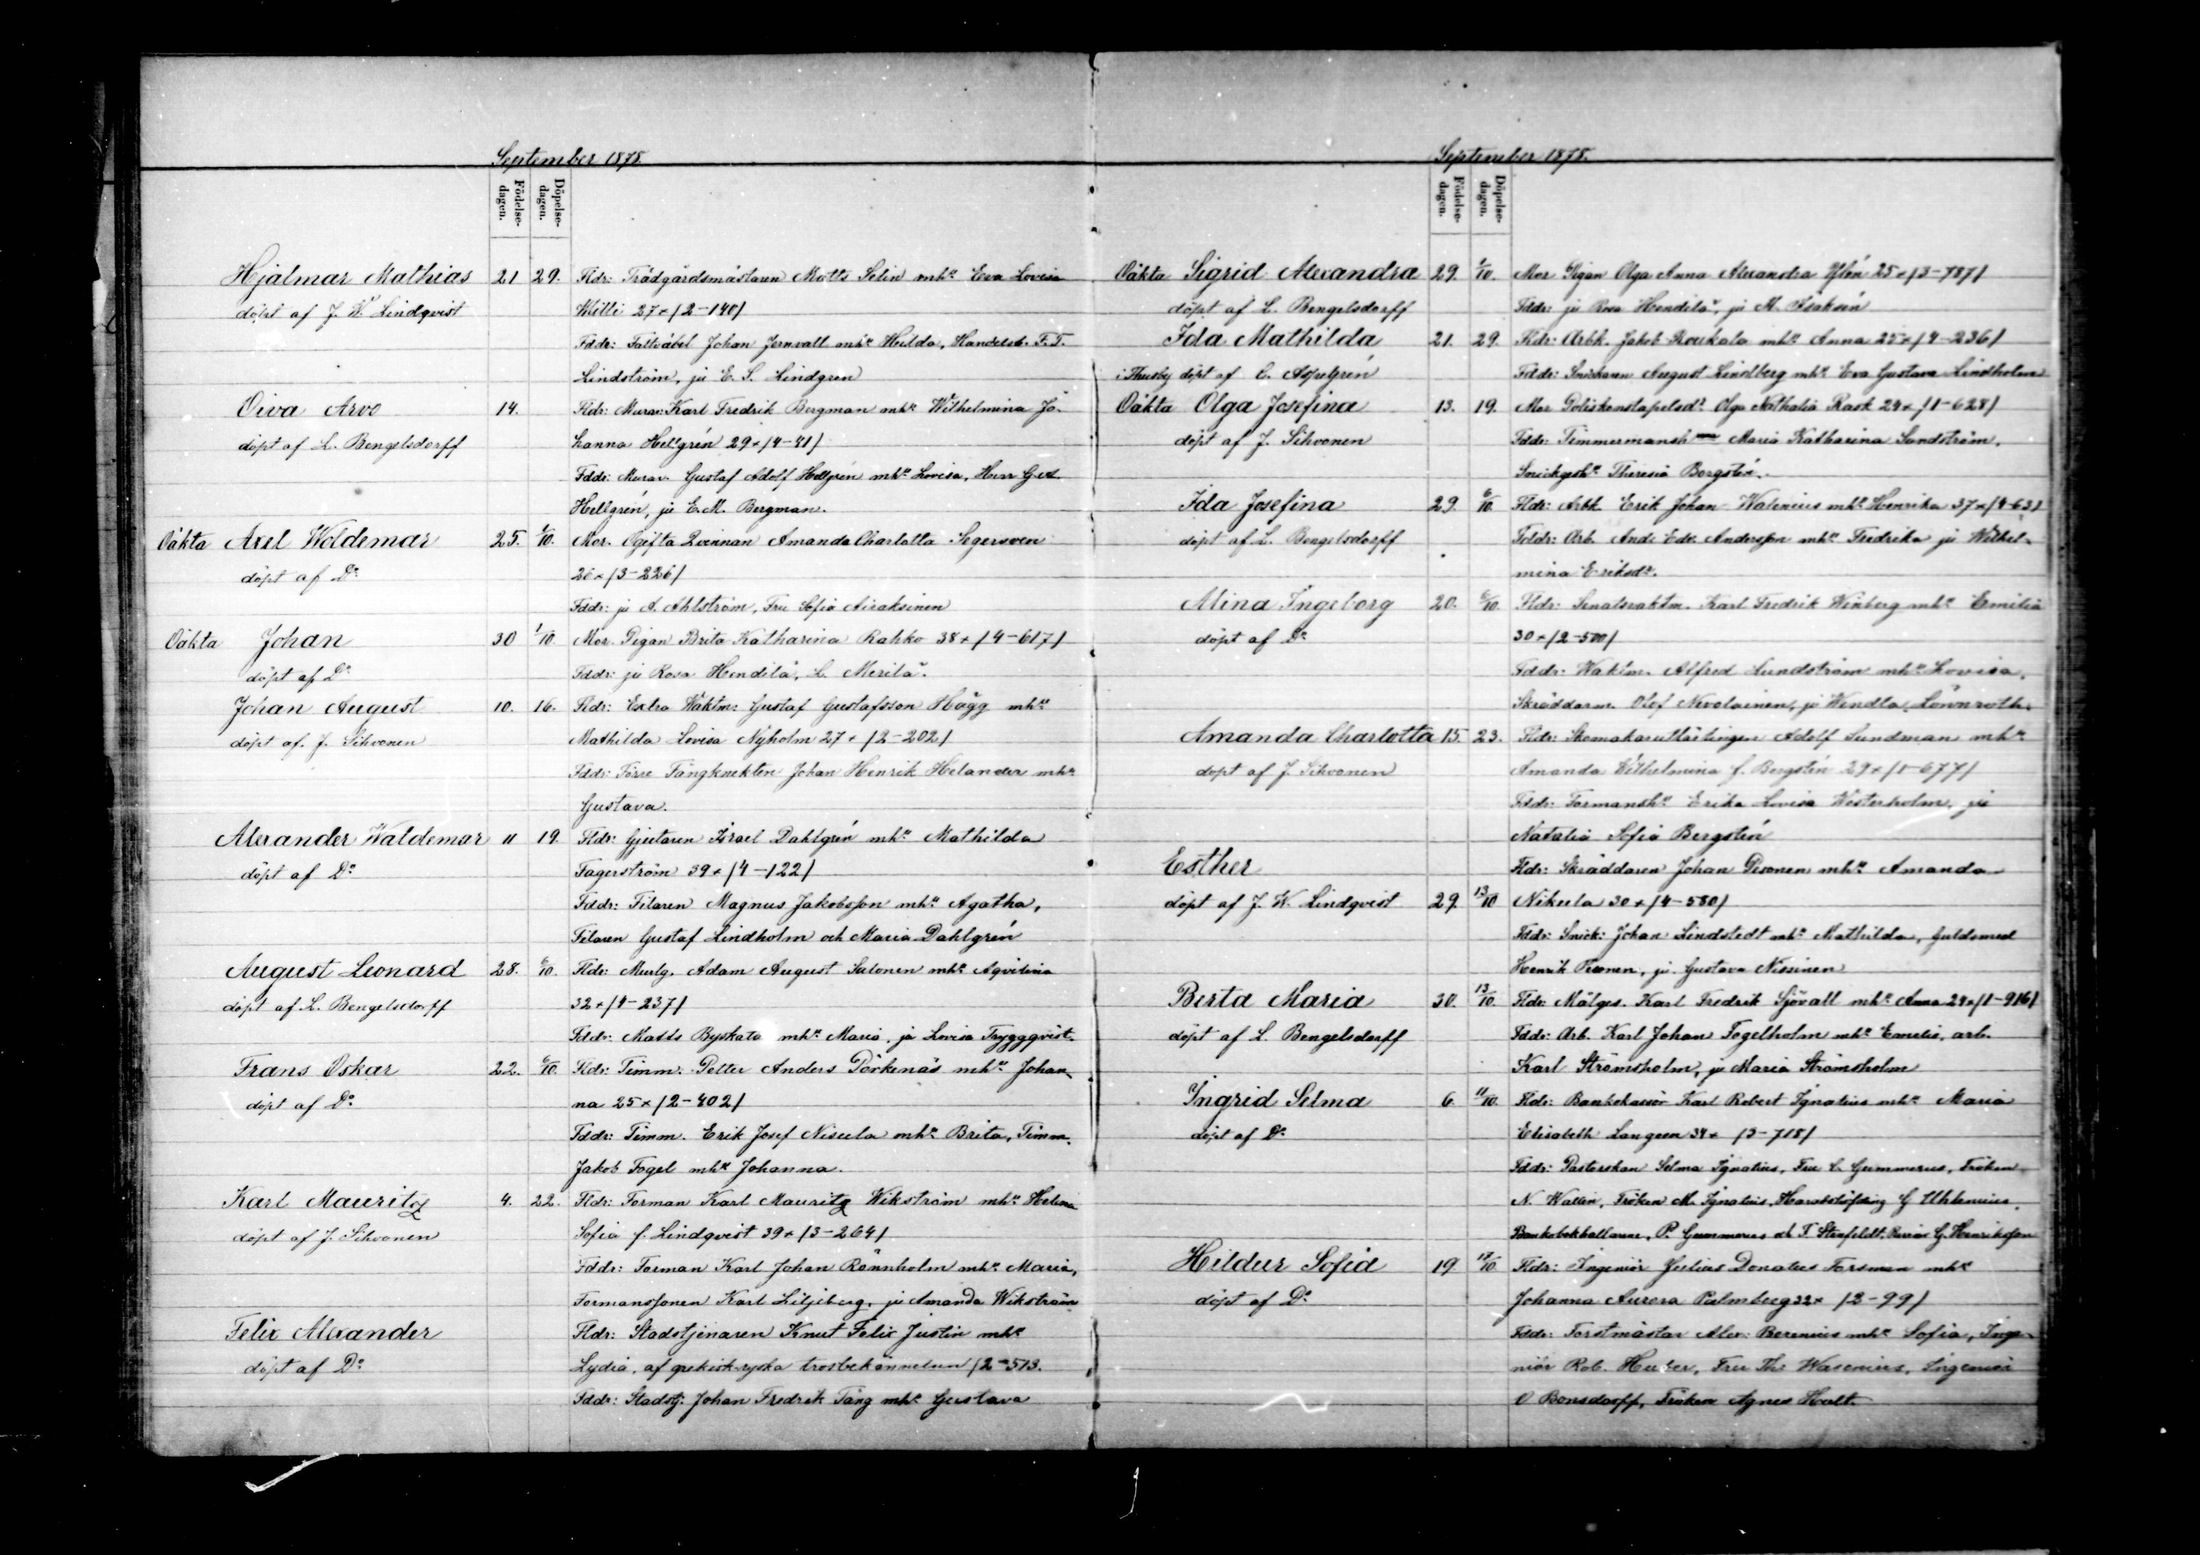 September 1878.
Födelse-dagen.
Döpelse-dagen.
Hjalmar Mathias 21 29. Fldr: Trädgårdsmästaren Matts Selin mhu Eva Lovisa
döpt af J. W. Lindqvist 27 x /2-140/
Fddr: Johan Jernvall mhu Hulda, Handelsb. F. T.
Lindström, ju E. S. Lindgren
Oiva Arvo 14. Fldr: Murar. Karl Fredrik Bergman mhu Wilhelmina Jo-
döpt af L. Bengelsdorff hanna Hellgrén 29 x /4-41/
Fddr: Murar. Gustaf Adolf Hellgrén mhu Lovisa, Herr
Hellgrén, ju E. M. Bergman.
Oäkta Axel Woldemar 25. 1/10. Mor. Ogifta Qvinnan Amanda Charlotta Segersven
döpt af Do 26 x /3-226/
Fddr: ju A. Ahlström, Fru Sofia Airaksinen
Oäkta Johan 30 1/10. Mor. Pigan Brita Katharina Rahko 38 x /4-617/
döpt af Do Fddr: ju Rosa Hendilä, L. Merilä.
Johan August 10. 16. Fldr: Extra Waktm: Gustaf Gustafsson Hägg mhu
döpt af. J. Sihvonen Mathilda Lovisa Nyholm 27 x /2-202/
Fddr: Förre Fångknekten Johan Henrik Helander mhu
Gustava.
Alexander Waldemar 11 19. Fldr: Gjutaren Israel Dahlgrén mhu Mathilda
döpt af Do Fagerström 39 x /4-122/
Fddr: Filaren Magnus Jakobsson mhu Agatha,
Filaren Gustaf Lindholm och Maria Dahlgrén
August Leonard 28. 6/10. Fldr: Murlg. Adam August Salonen mhu Aqvilina
döpt af L. Bengelsdorff 32 x /4-237/
Fddr: Matts Byskata mhu Maria, ju Lovisa Tryggqvist.
Frans Oskar 22. 6/10. Fldr: Timm: Petter Anders Pörkenäs mhu Johan-
döpt af Do na 25 x /2-402/
Fddr: Timm. Erik Josef Niscela mhu Brita, Timm.
Jakob Fogel mhu Johanna.
Karl Mauritz 4. 22. Fldr: Forman Karl Mauritz Wikström mhu Helena
döpt af J. Sihvonen Sofia f. Lindqvist 39 x /3-264/
Fddr: Forman Karl Johan Rönnholm mhu Maria,
Formanssonen Karl Liljeberg, ju Amanda Wikström
Felix Alexander Fldr: Stadstjenaren Knut Felix Justin mhu
döpt af Do Lydia, af grekisk-ryska trosbekännelsen /2-513.
Fddr: Stadstj: Johan Fredrik Täng mhu Gustava
September 1878.
Födelse-dagen.
Döpelse-dagen.
Oäkta Sigrid Alexandra 29. 1/10. Mor Pigan Olga Anna Alexandra Ylén 25 x /3-787/
döpt af L. Bengelsdorff Fddr: ju Rosa Hendilä, ju M. Isaksén
Ida Mathilda 21. 29. Fldr: Arbk. Jakob Roukala mhu Anna 25 x /4-236/
i Thusby döpt af C. Aspelgrén Fddr: Snickaren August Lindberg mhu Eva Gustava Lindholm
Oäkta Olga Josefina 13. 19. Mor Poliskonstapelsdr Olga Nathalia Rask 24 x /1-628/
döpt af J. Sihvonen Fddr: Timmermansh Maria Katharina Sandström,
Snickgesh: Theresia Borgstén.
Ida Josefina 29. 6/10. Fldr: Arbk. Erik Johan Walenius mhu Henrika 37 x /4-63/
döpt af L. Bengelsdorff Fddr: Arb. And: Edv. Andersson mhu Fredrika ju Wilhel-
mina Eriksdr.
Alina Ingeborg 20. 6/10. Fldr: Senatsvaktm. Karl Fredrik Winberg mhu Emilia
döpt af Do 30 x /2-500/
Fddr: Waktm. Alfred Lundström mhu Lovisa,
Skräddarm. Olof Nevolainen, ju Wendla Lönnroth.
Amanda Charlotta 15. 23. Fldr: Skomakarutlärlingen Adolf Sundman mhu
döpt af J. Sihvonen Amanda Wilhelmina f. Bergstén 29 x /1-677/
Fddr: Formansh: Erika Lovisa Westerholm, ju
Natalia Sofia Bergstén
Esther Fldr: Skräddaren Johan Pesonen mhu Amanda
döpt af J. W. Lindqvist 29. 13/10 Nikula 30 x /4-580/
Fddr: Snick: Johan Lindstedt mhu Mathilda, Guldsmed
Henrik Pesonen, ju Gustava Nissinen
Berta Maria 30. 13/10. Fldr: Målges. Karl Fredrik Sjövall mhu Anna 24 x /1-916/
döpt af L. Bengelsdorff Fddr: Arb. Karl Johan Fogelholm mhu Emelie, arb.
Karl Strömsholm, ju Maria Strömsholm
Ingrid Selma 6. 11/10. Fldr: Bankokassör Karl Robert Ignatius mhu Maria
döpt af Do Elisabeth Langeen 34 x /3-718/
Fddr: Pastorskan Selma Ignatius, Fru C. Gummerus, Fröken
N. Wallin, Fröken M. Ignatius, Haradshöfding G Uhlenius,
Bankobokhållarne, P. Gummerus ch F. Stenfeldt, G. Henriksson
Hildur Sofia 19 17/10. Fldr: Ingeniör Julius Donatus Forsman mhu
döpt af Do Johanna Aurora Palmberg 32 x /2-99/
Fddr: Forstmästar Alex: Berenius mhu Sofia, Inge-
niör Rob. Huber, Fru Th: Wasenius, Ingeniör
O Bonsdorff, Fröken Agnes Hult.